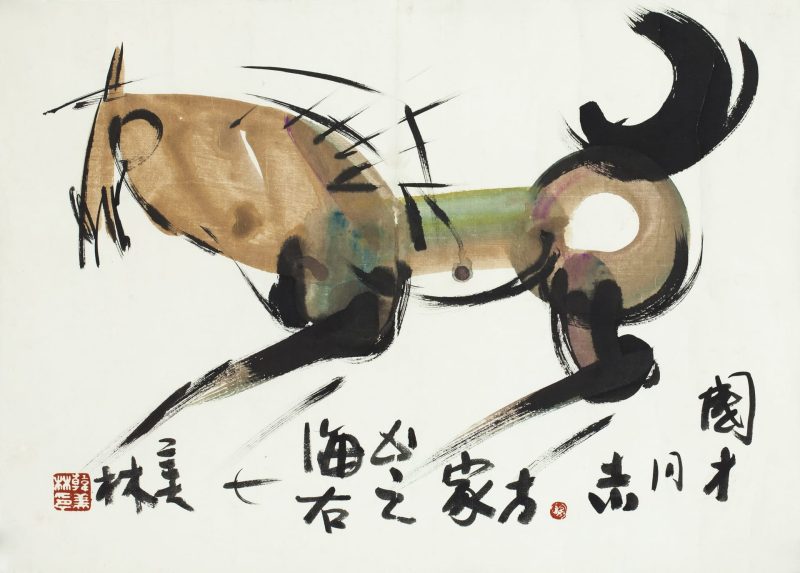 國才
同志
方家
之
海右
美林
韓美林印